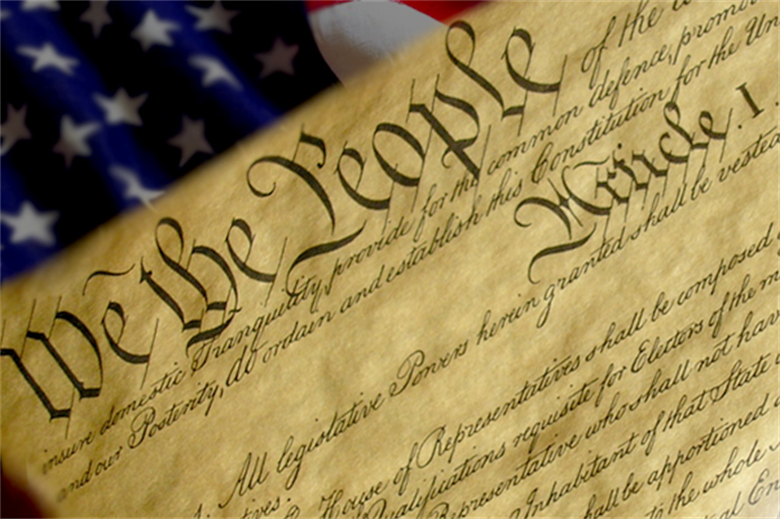 We the People of the
insure domestic Tranquility, provide for the common defence, promo
and our Posterity, do ordain and establish this Constitution for the Un
Article I.
1. All legislative Powers herein granted shall be vested
tives.
House of Representatives shall be composed
Qualifications requisite for Electors of the m
Representative who shall not hav
Inhabitant of that State
hall be apportioned
to the whole